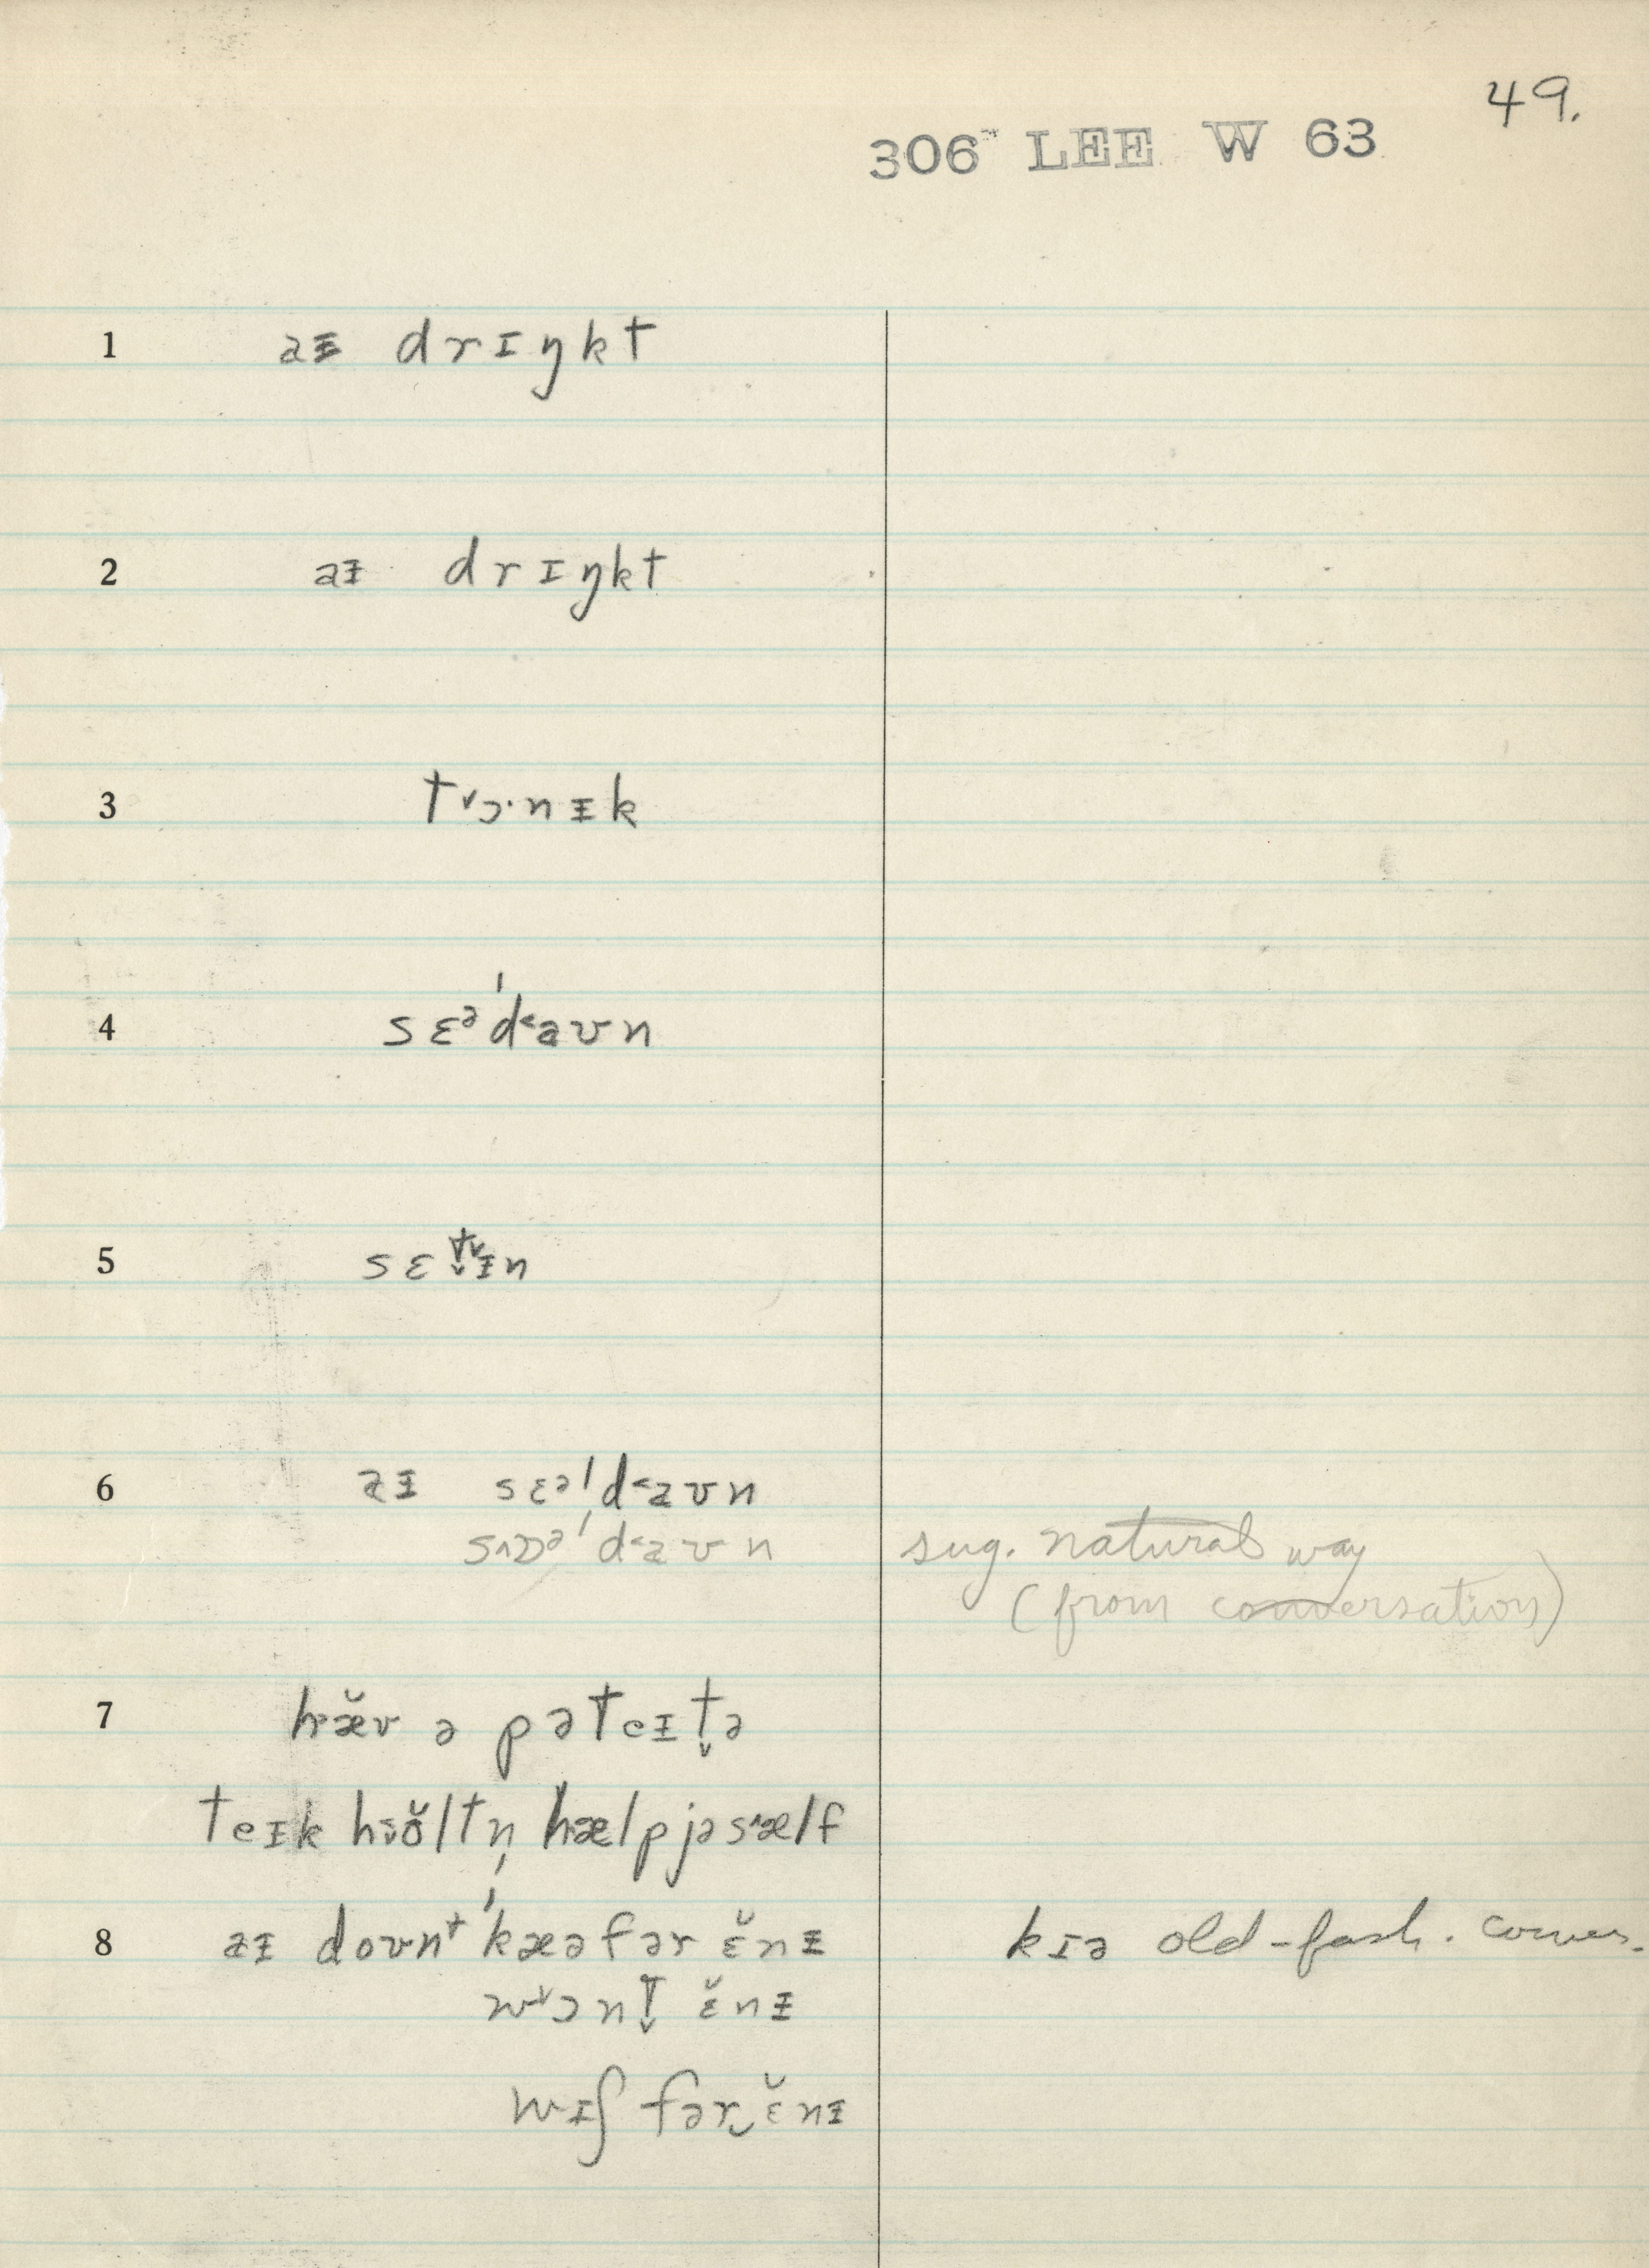 49.
306 LEE W 63
1 aᵻ drɪŋkt
2 aᵻ drɪŋkt
3 t˅ɔ·nᵻk
4 sɛᵊˈd˂aʊn
5 sɛt̬˅ᵻn
6 aᵻ sɛəˈd˂aʊn
s˄ɒᵊˈd˂aʊn sug. natural way
(from conversation)
7 hæ̆v ə pəteᵻt̬ə
teɪk hoʊ̆ltn̩ hælpjəs˄ælf
8 aᵻ doʊnᵗ ˈkæəfər ɛ̆nᵻ kɪə old-fash. conver.
w˅ɔnt̬ ɛ̆nᵻ
wɪʃ fər‿ɛ̆nᵻ